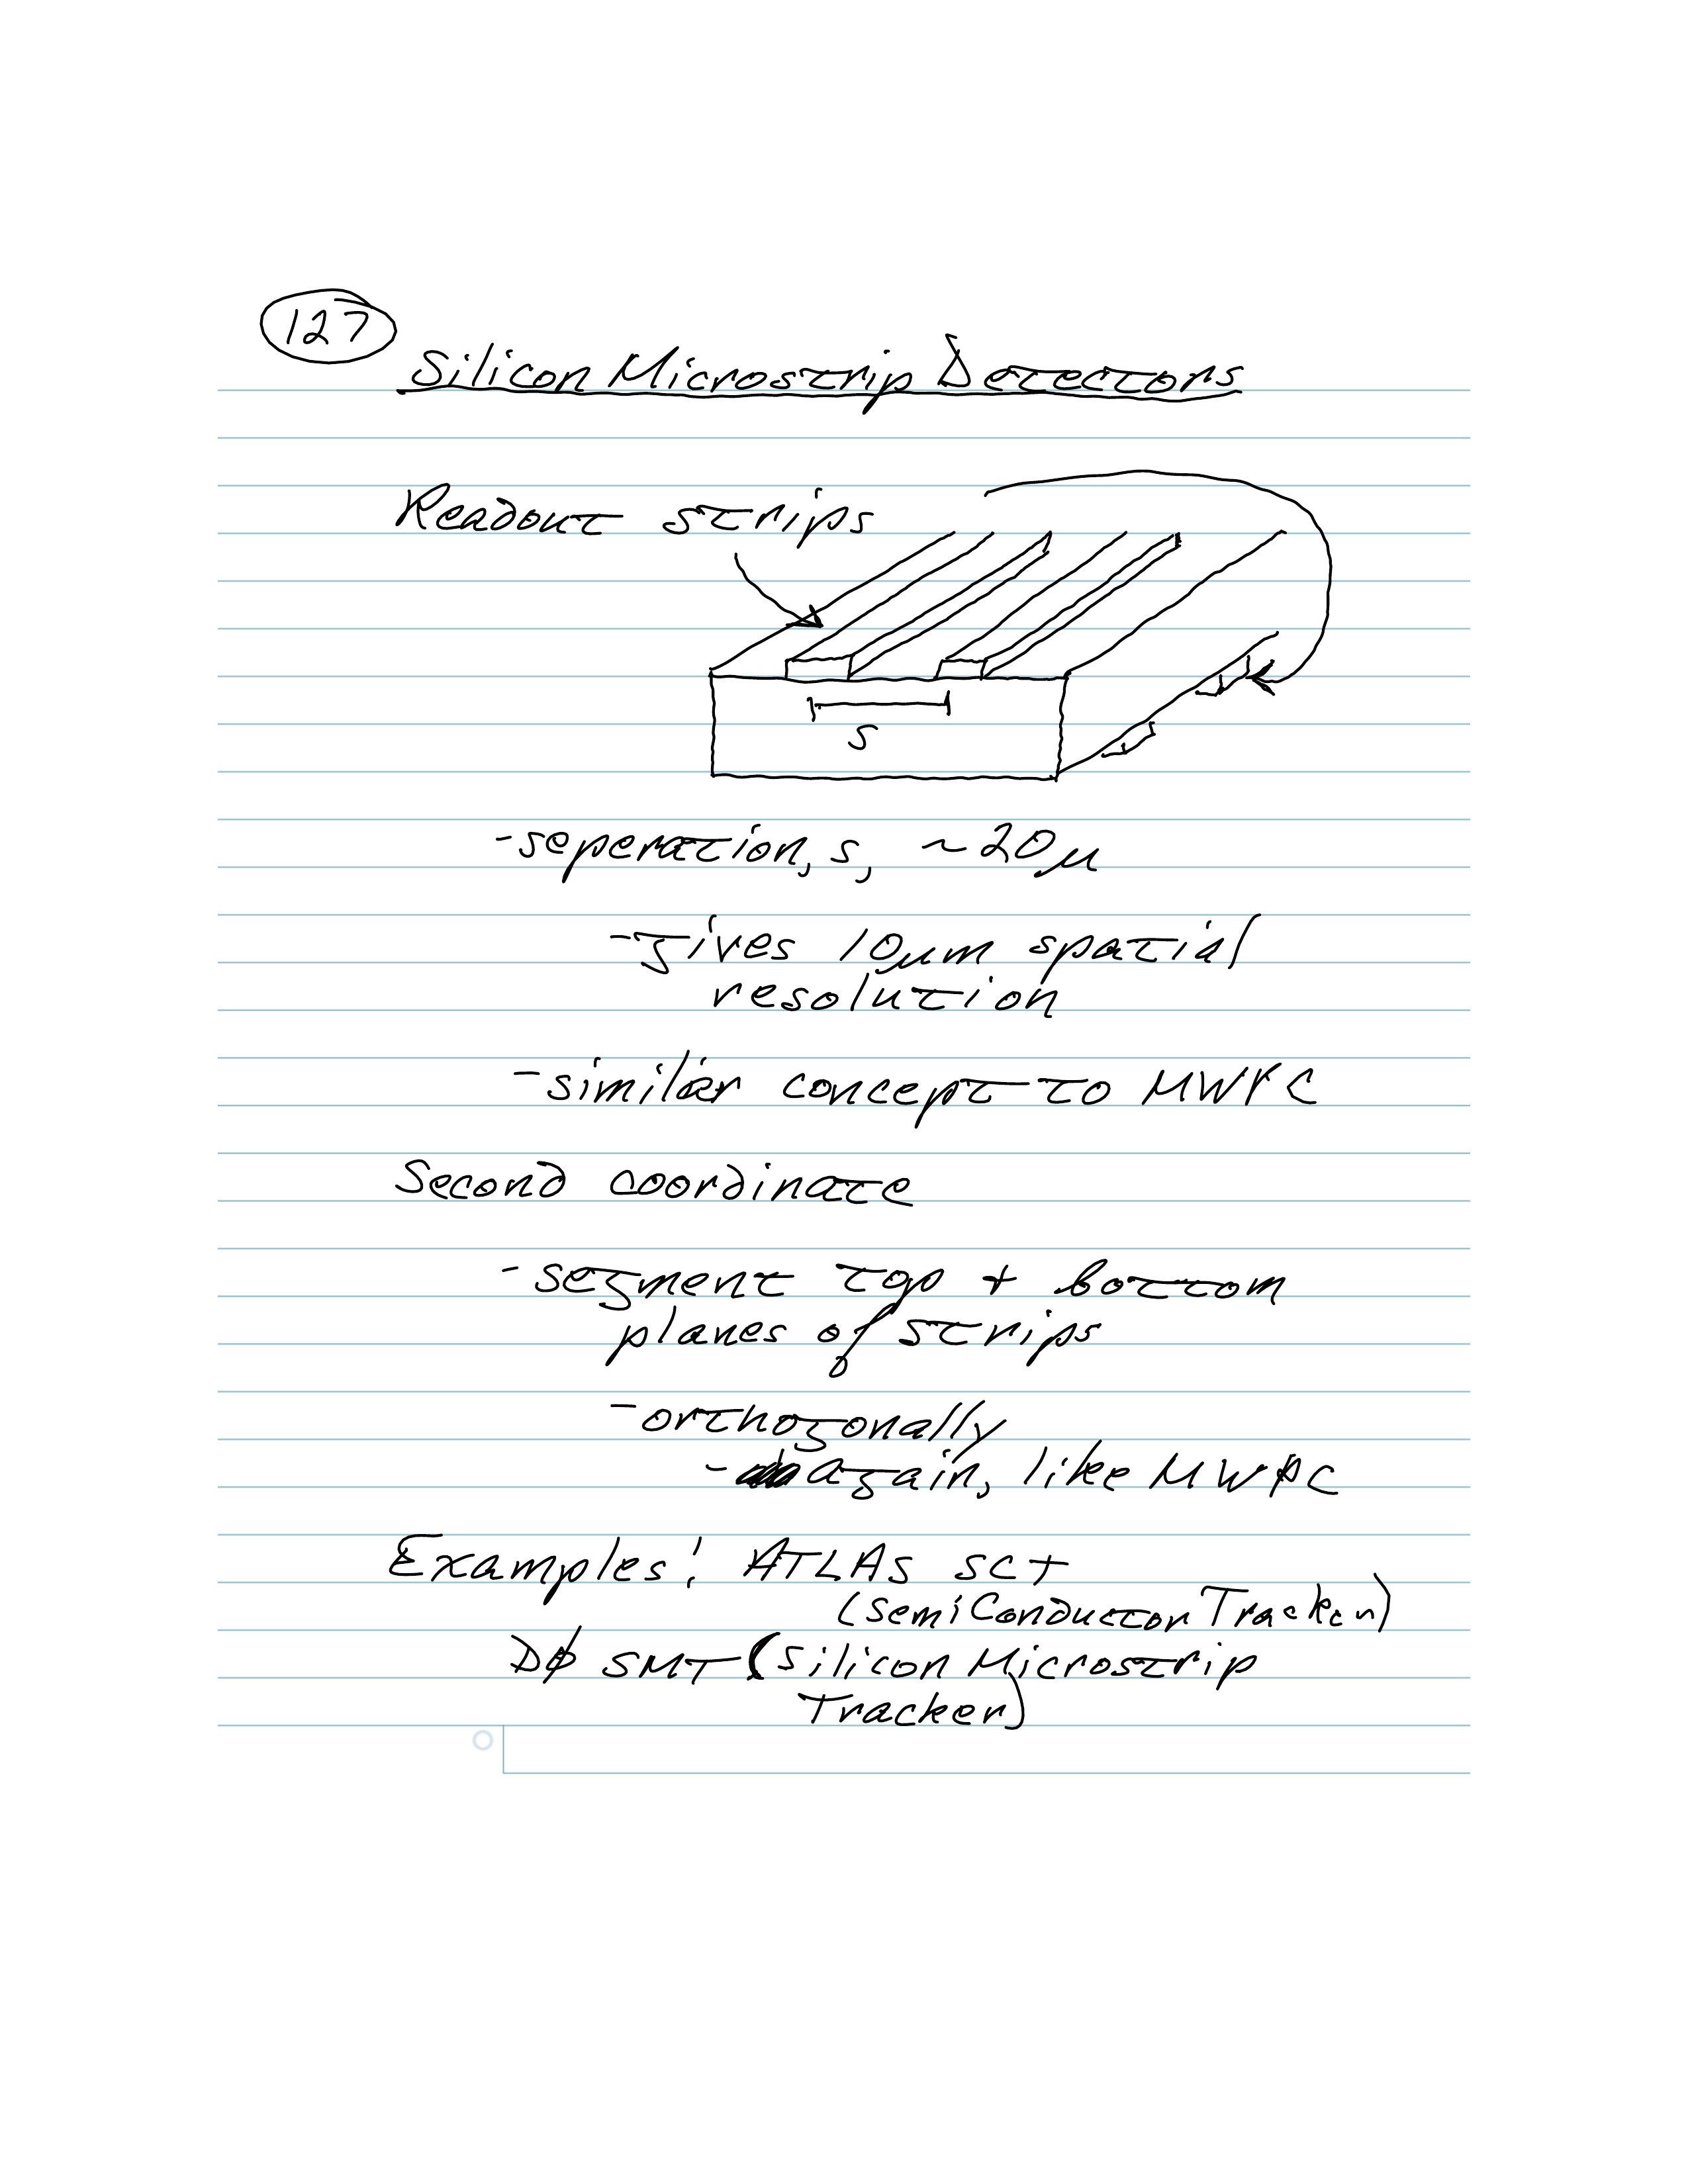 127
Silicon Microstrip Detectors
Readout strips
s
-seperation, s, ~20μ
-gives 10μm spatial
resolution
-similar concept to MWPC
Second coordinate
-segment top + bottom
planes of strips
-orthogonally
-again, like MWPC
Examples: ATLAS SCT
(SemiConductor Tracker)
DØ SMT (Silicon Microstrip
Tracker)